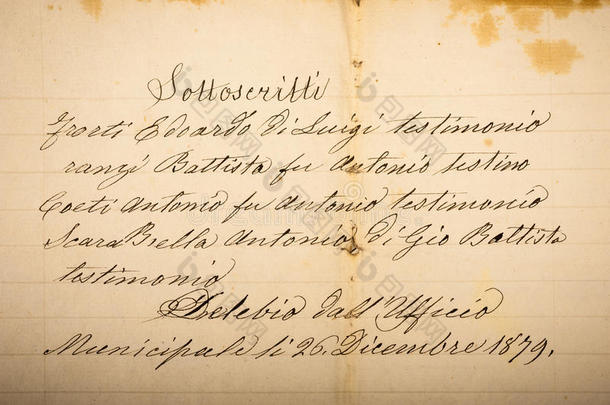 Sottoscritti
Fraeti Edoardo di Luigi testimonio
rangi Battista fu Antonio testino
Coeti Antonio fu Antonio testimonio
Scara Biella Antonio di Gio Battista
testimonio
Delebio dall' Ufficio
Municipale li 26. Dicembre 1879.